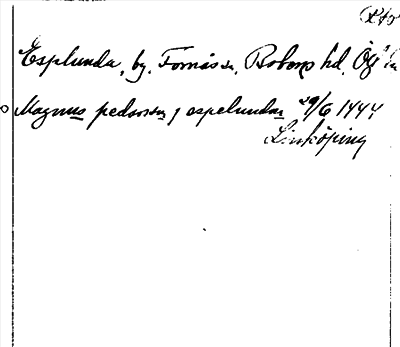 Esplunda, by, Fornåsa sn, Bobergs hd, Ög
Magnus pedersson j espelundum 29/6 1444
Linköping